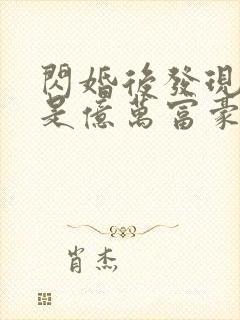 閃婚後發現
是億萬富豪
肖杰